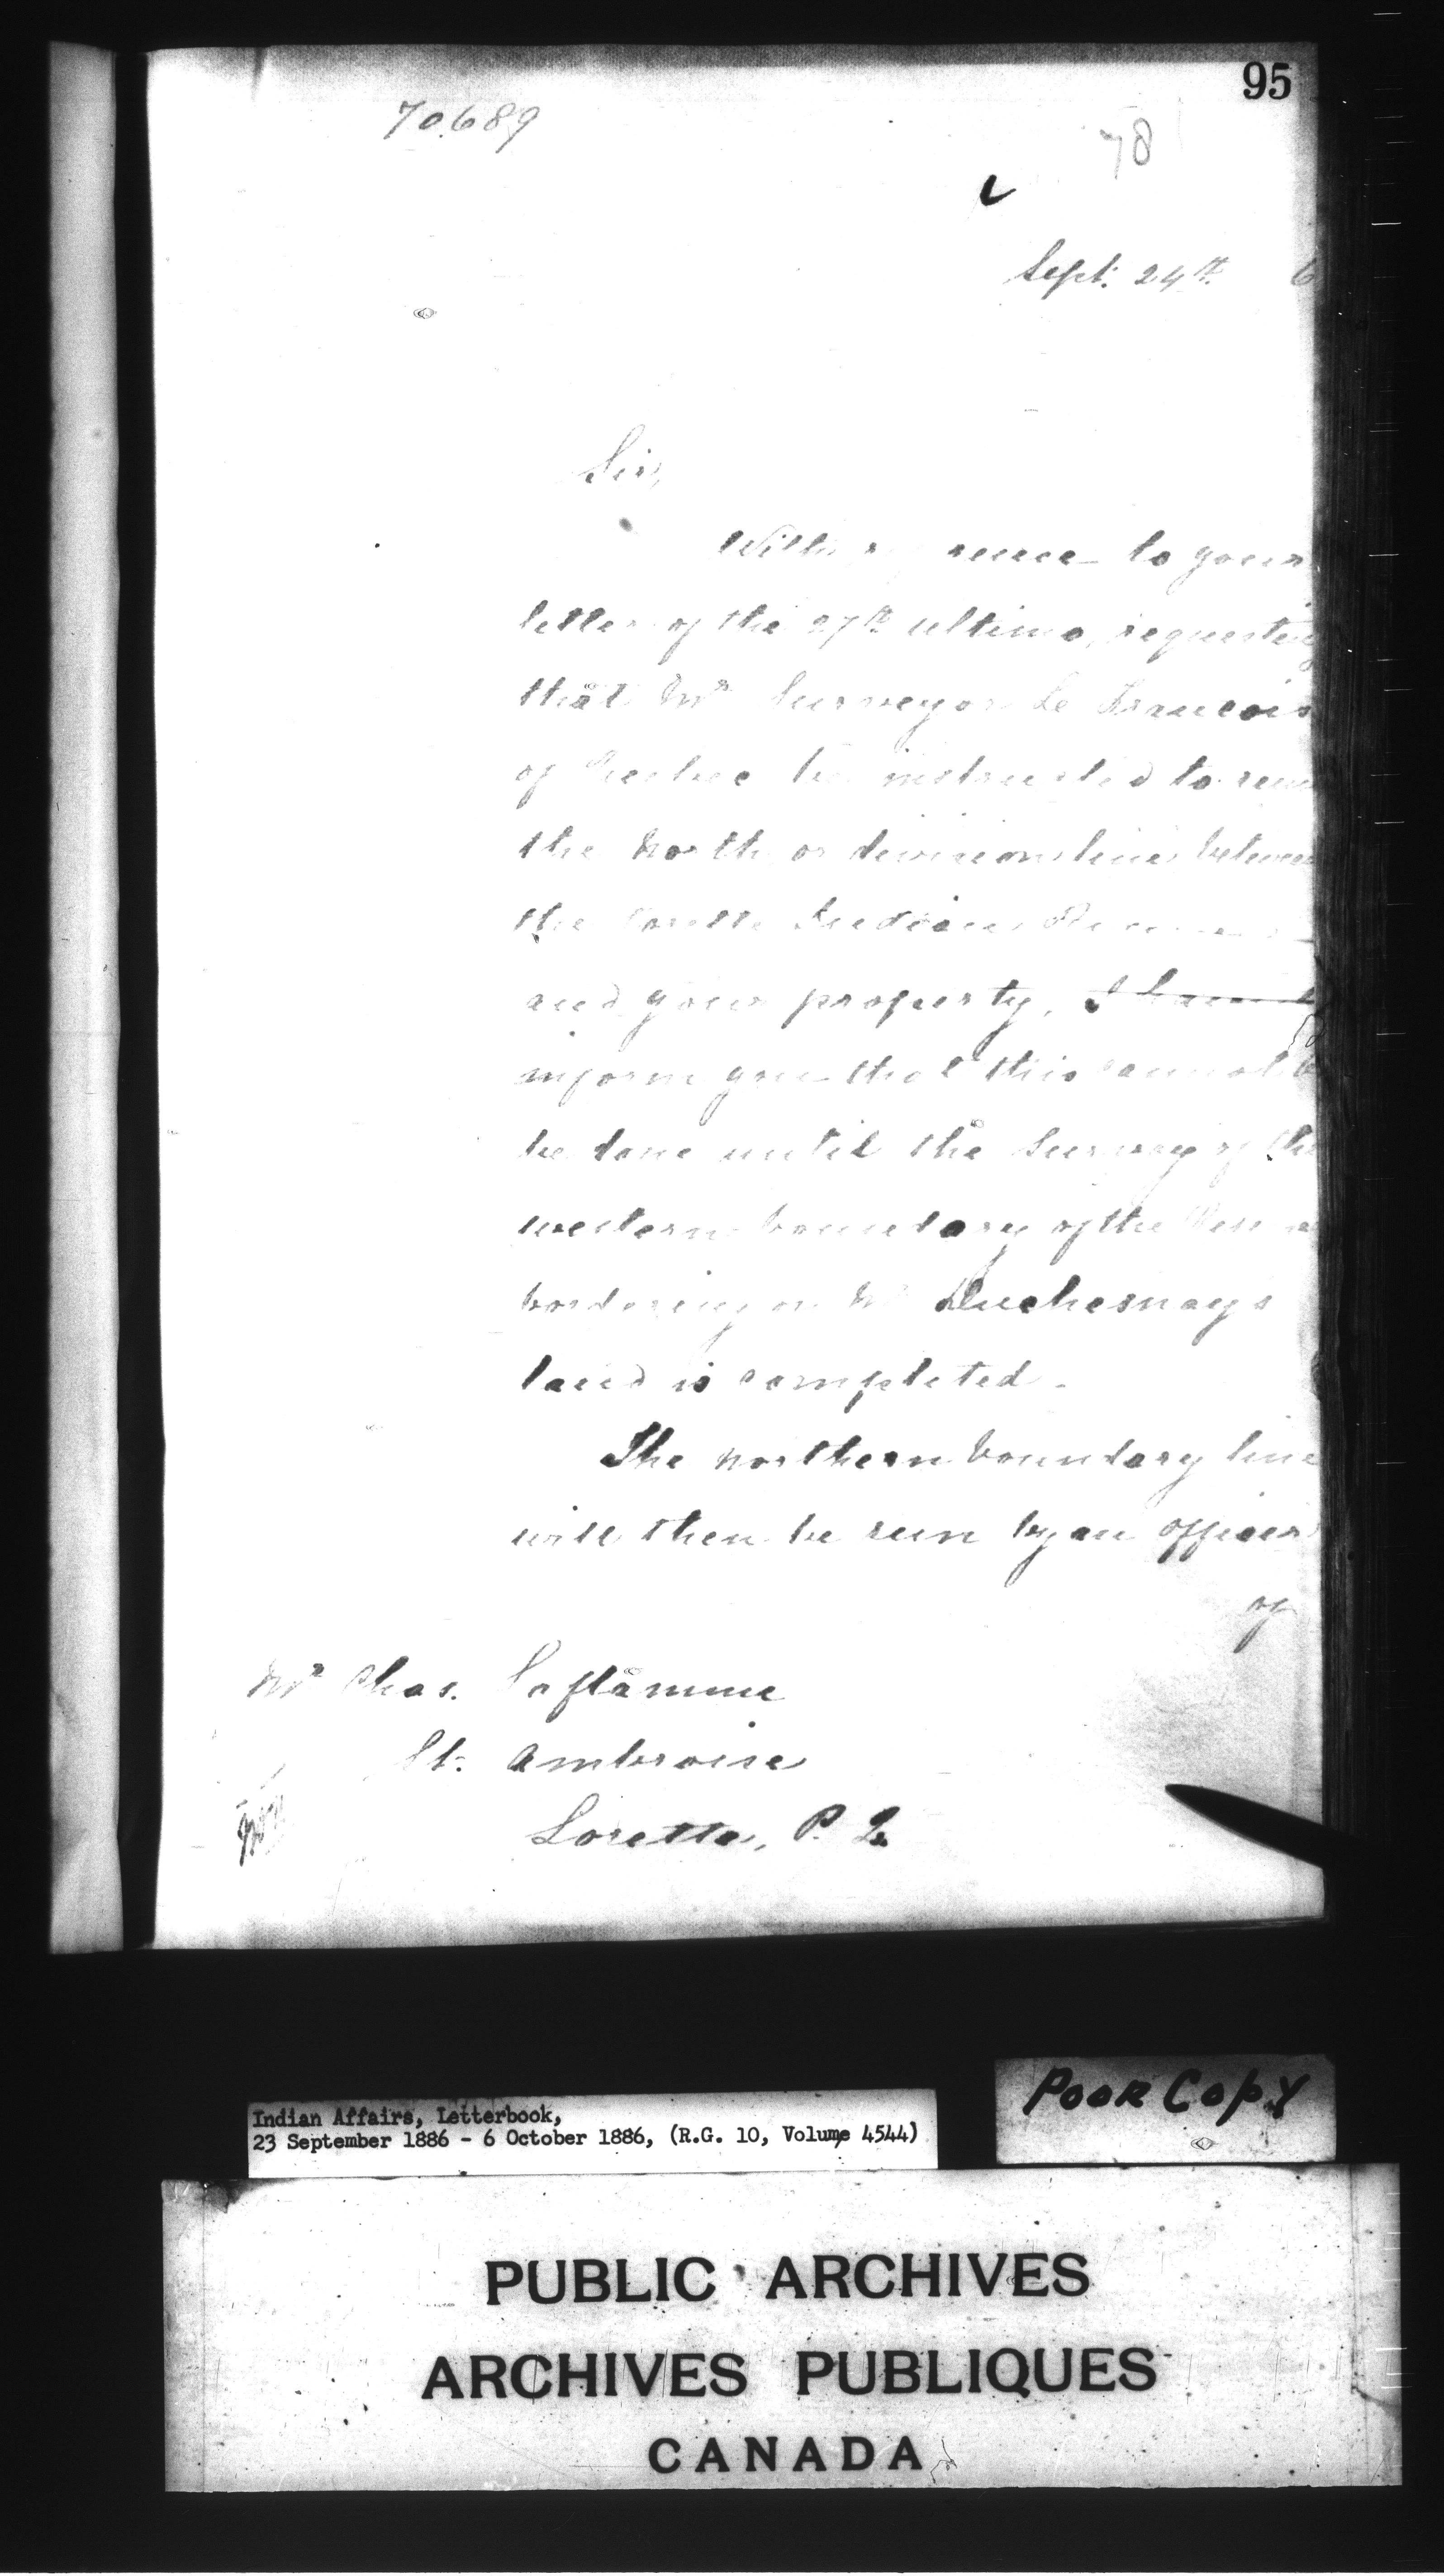 95
70.689
78
Sept. 24th 6
Sir,
With to your
letter of the 27th ultimo, requesting
that Mr Surveyor Le Francois
of be instructed to run
the North or division line between
the Lorette Indian
and your property, I have to
inform you that this cannot
be done until the Survey of the
western boundary of the
bordering on Mr Duchesnays
land is completed.
The northern boundary line
will then be run by an officer
of
Mr Chas. Laflamme
St. Ambroise
Lorette, P. Q.
Poor Copy
Indian Affairs, Letterbook,
23 September 1886 - 6 October 1886, (R.G. 10, Volume 4544)
PUBLIC ARCHIVES
ARCHIVES PUBLIQUES
CANADA